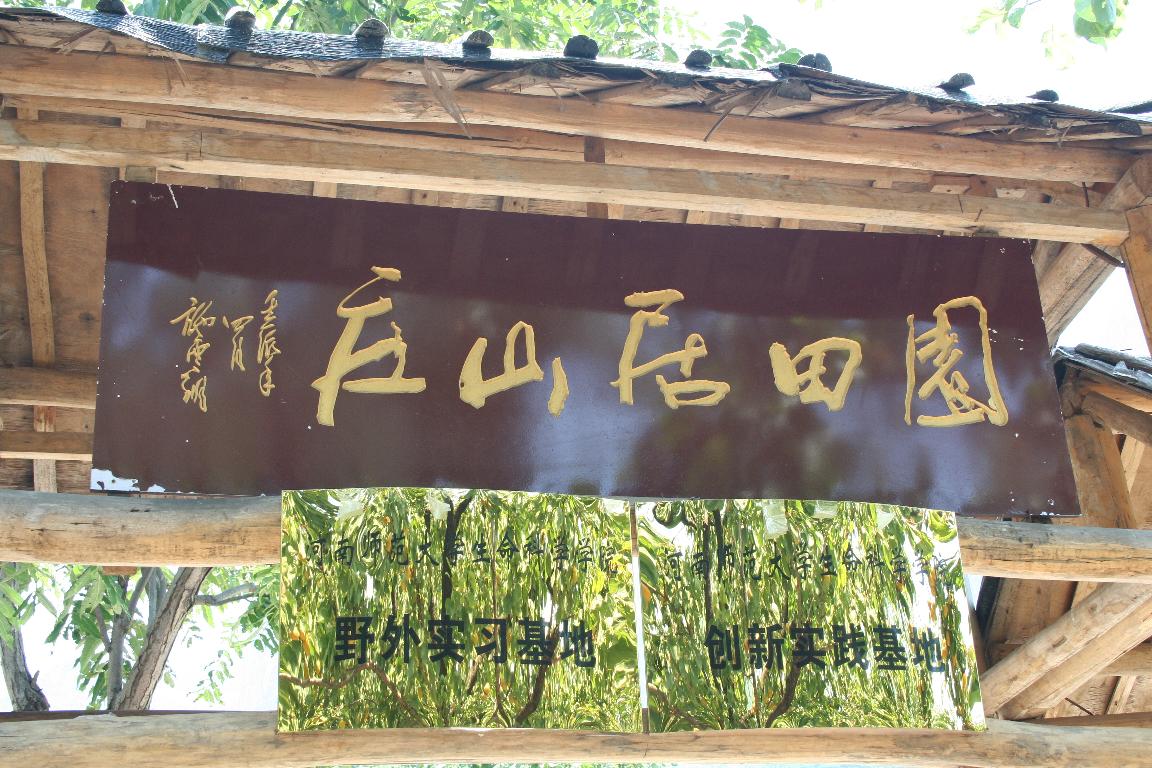 園田居山庄
壬辰年
四月
河南师范大学生命科学学院
野外实习基地
河南师范大学生命科学学院
创新实践基地